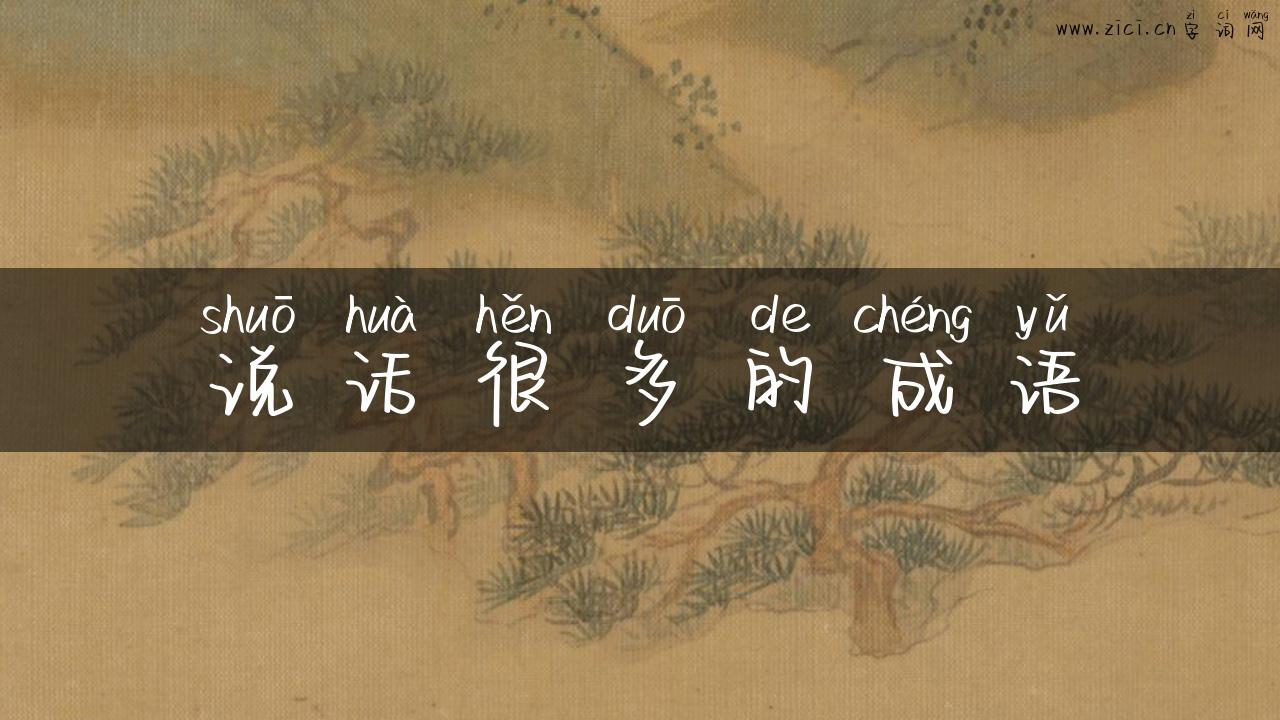 zì cí wǎng
www.zici.cn 字词网
shuō huà hěn duō de chéng yǔ
说话很多的成语